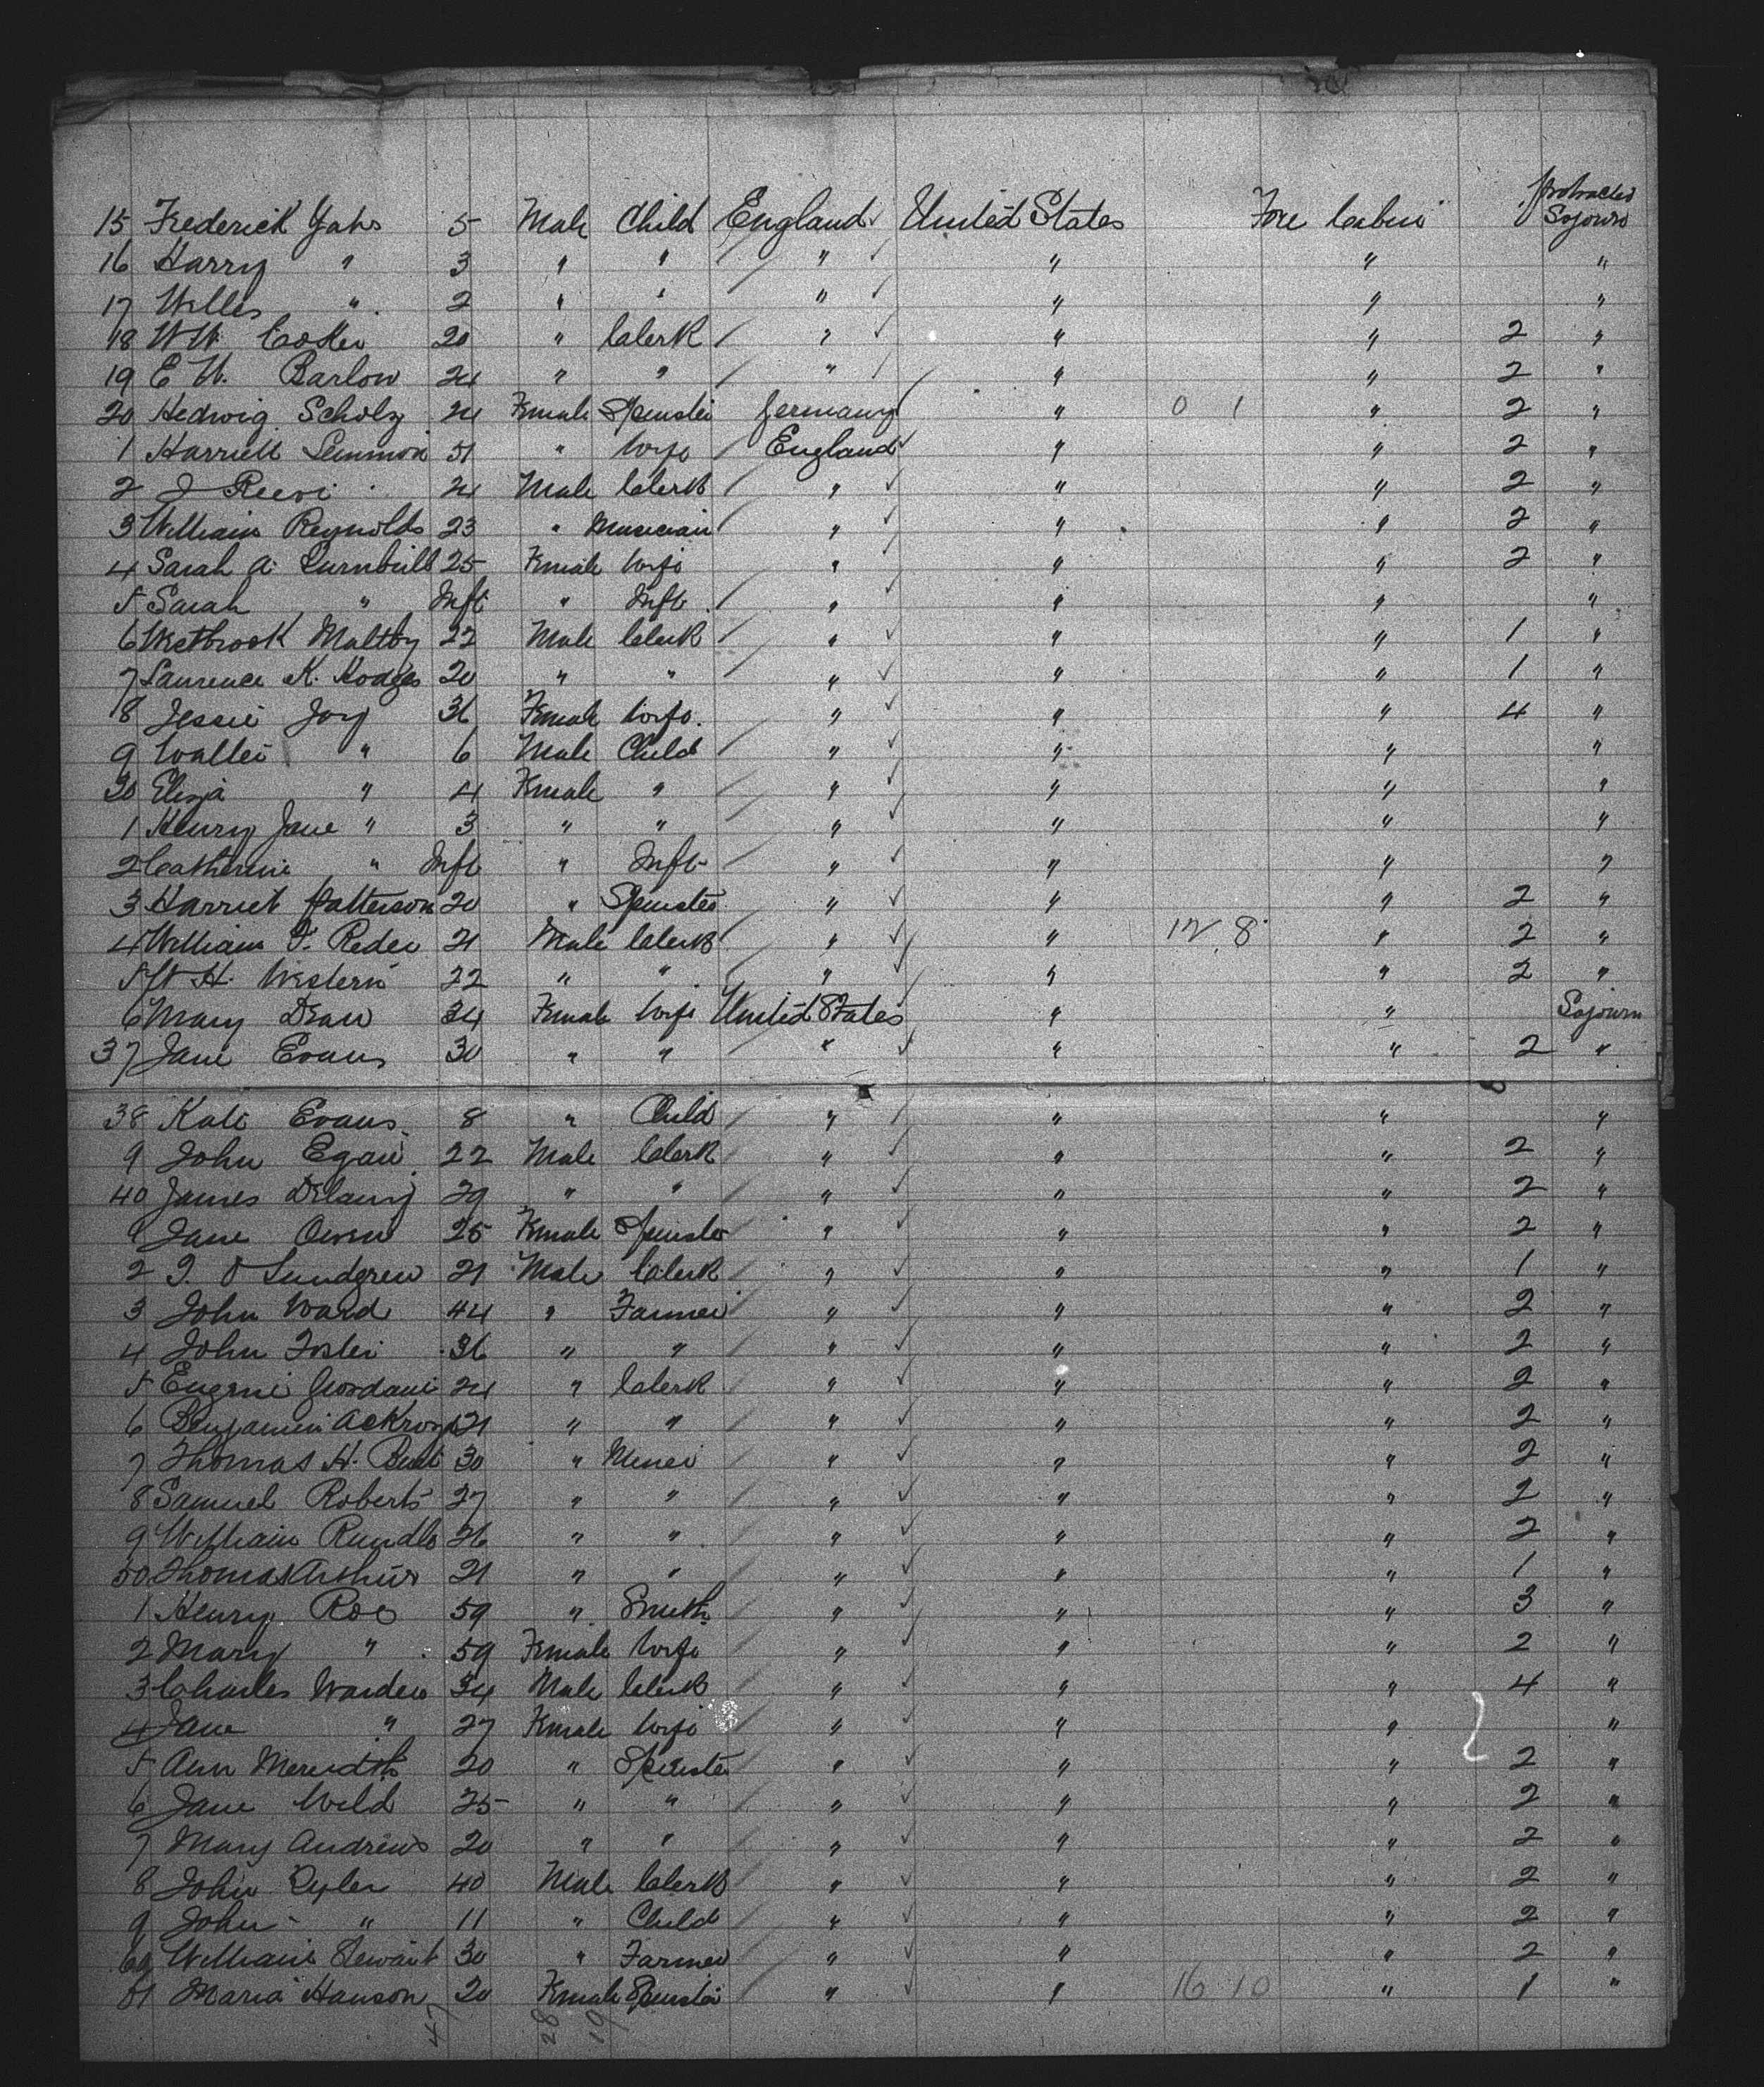 protracted
15 Frederick Yahs 5 Male Child England United States Fore Cabin Sojourn
16 Harry " 3 " " " " " "
17 Willes " 2 " " " " " "
18 W W. 20 " Clerk " " " 2 "
19 E W. Barlow 24 " " " " " 2 "
20 Hedwig Scholz 24 Female Spinster Germany " 0 1 " 2 "
1 Harriett Lemmon 51 " Wife England " " 2 "
2 J Reeve 24 Male Clerk " " " 2 "
3 William Reynolds 23 " Musician " " " 2 "
4 Sarah A. Turnbull 25 Female Wife " " " 2 "
5 Sarah " Inft " Inft " " " "
6 Westbrook Maltby 22 Male Clerk " " " 1 "
7 Laurence K. Hodges 20 " " " " " 1 "
8 Jessie Joy 36 Female Wife " " " 4 "
9 Walter " 6 Male Child " " " "
30 Eliza " 4 Female " " " " "
1 Henry Jane " 3 " " " " " "
2 Catherine " Inft " Inft " " " "
3 Harriet Patterson 20 " Spinster " " " 2 "
4 William F. Reder 21 Male Clerk " " 12 8 " 2 "
5 W. H. Western 22 " " " " " 2 "
6 Mary Dean 34 Female Wife United States " " Sojourn
37 Jane Evans 30 " " " " " 2 "
38 Kate Evans 8 " Child " " " "
9 John Egan 22 Male Clerk " " " 2 "
40 James Delany 29 " " " " " 2 "
1 Jane Owen 25 Female Spinster " " " 2 "
2 J. O Lundgren 21 Male Clerk " " " 1 "
3 John Ward 44 " Farmer " " " 2 "
4 John Foster 36 " " " " " 2 "
5 Eugene Giordani 24 " Clerk " " " 2 "
6 Benjamin Ackroyd 21 " " " " " 2 "
7 Thomas H. 30 " Miner " " " 2 "
8 Samuel Roberts 27 " " " " " 2 "
9 William Rundle 26 " " " " " 2 "
50 Thomas Arthur 21 " " " " " 1 "
1 Henry Roe 59 " Smith " " " 3 "
2 Mary " 59 Female Wife " " " 2 "
3 Charles Warden 34 Male Clerk " " " 4 "
4 Jane " 27 Female Wife " " " "
5 Ann Meredith 20 " Spinster " " " 2 "
6 Jane Wild 25 " " " " " 2 "
7 Mary Andrews 20 " " " " " 2 "
8 John 40 Male Clerk " " " 2 "
9 John " 11 " Child " " " 2 "
60 William Stewart 30 " Farmer " " " 2 "
61 Maria Hanson 20 Female Spinster " " 16 10 " 1 "
47 28 19